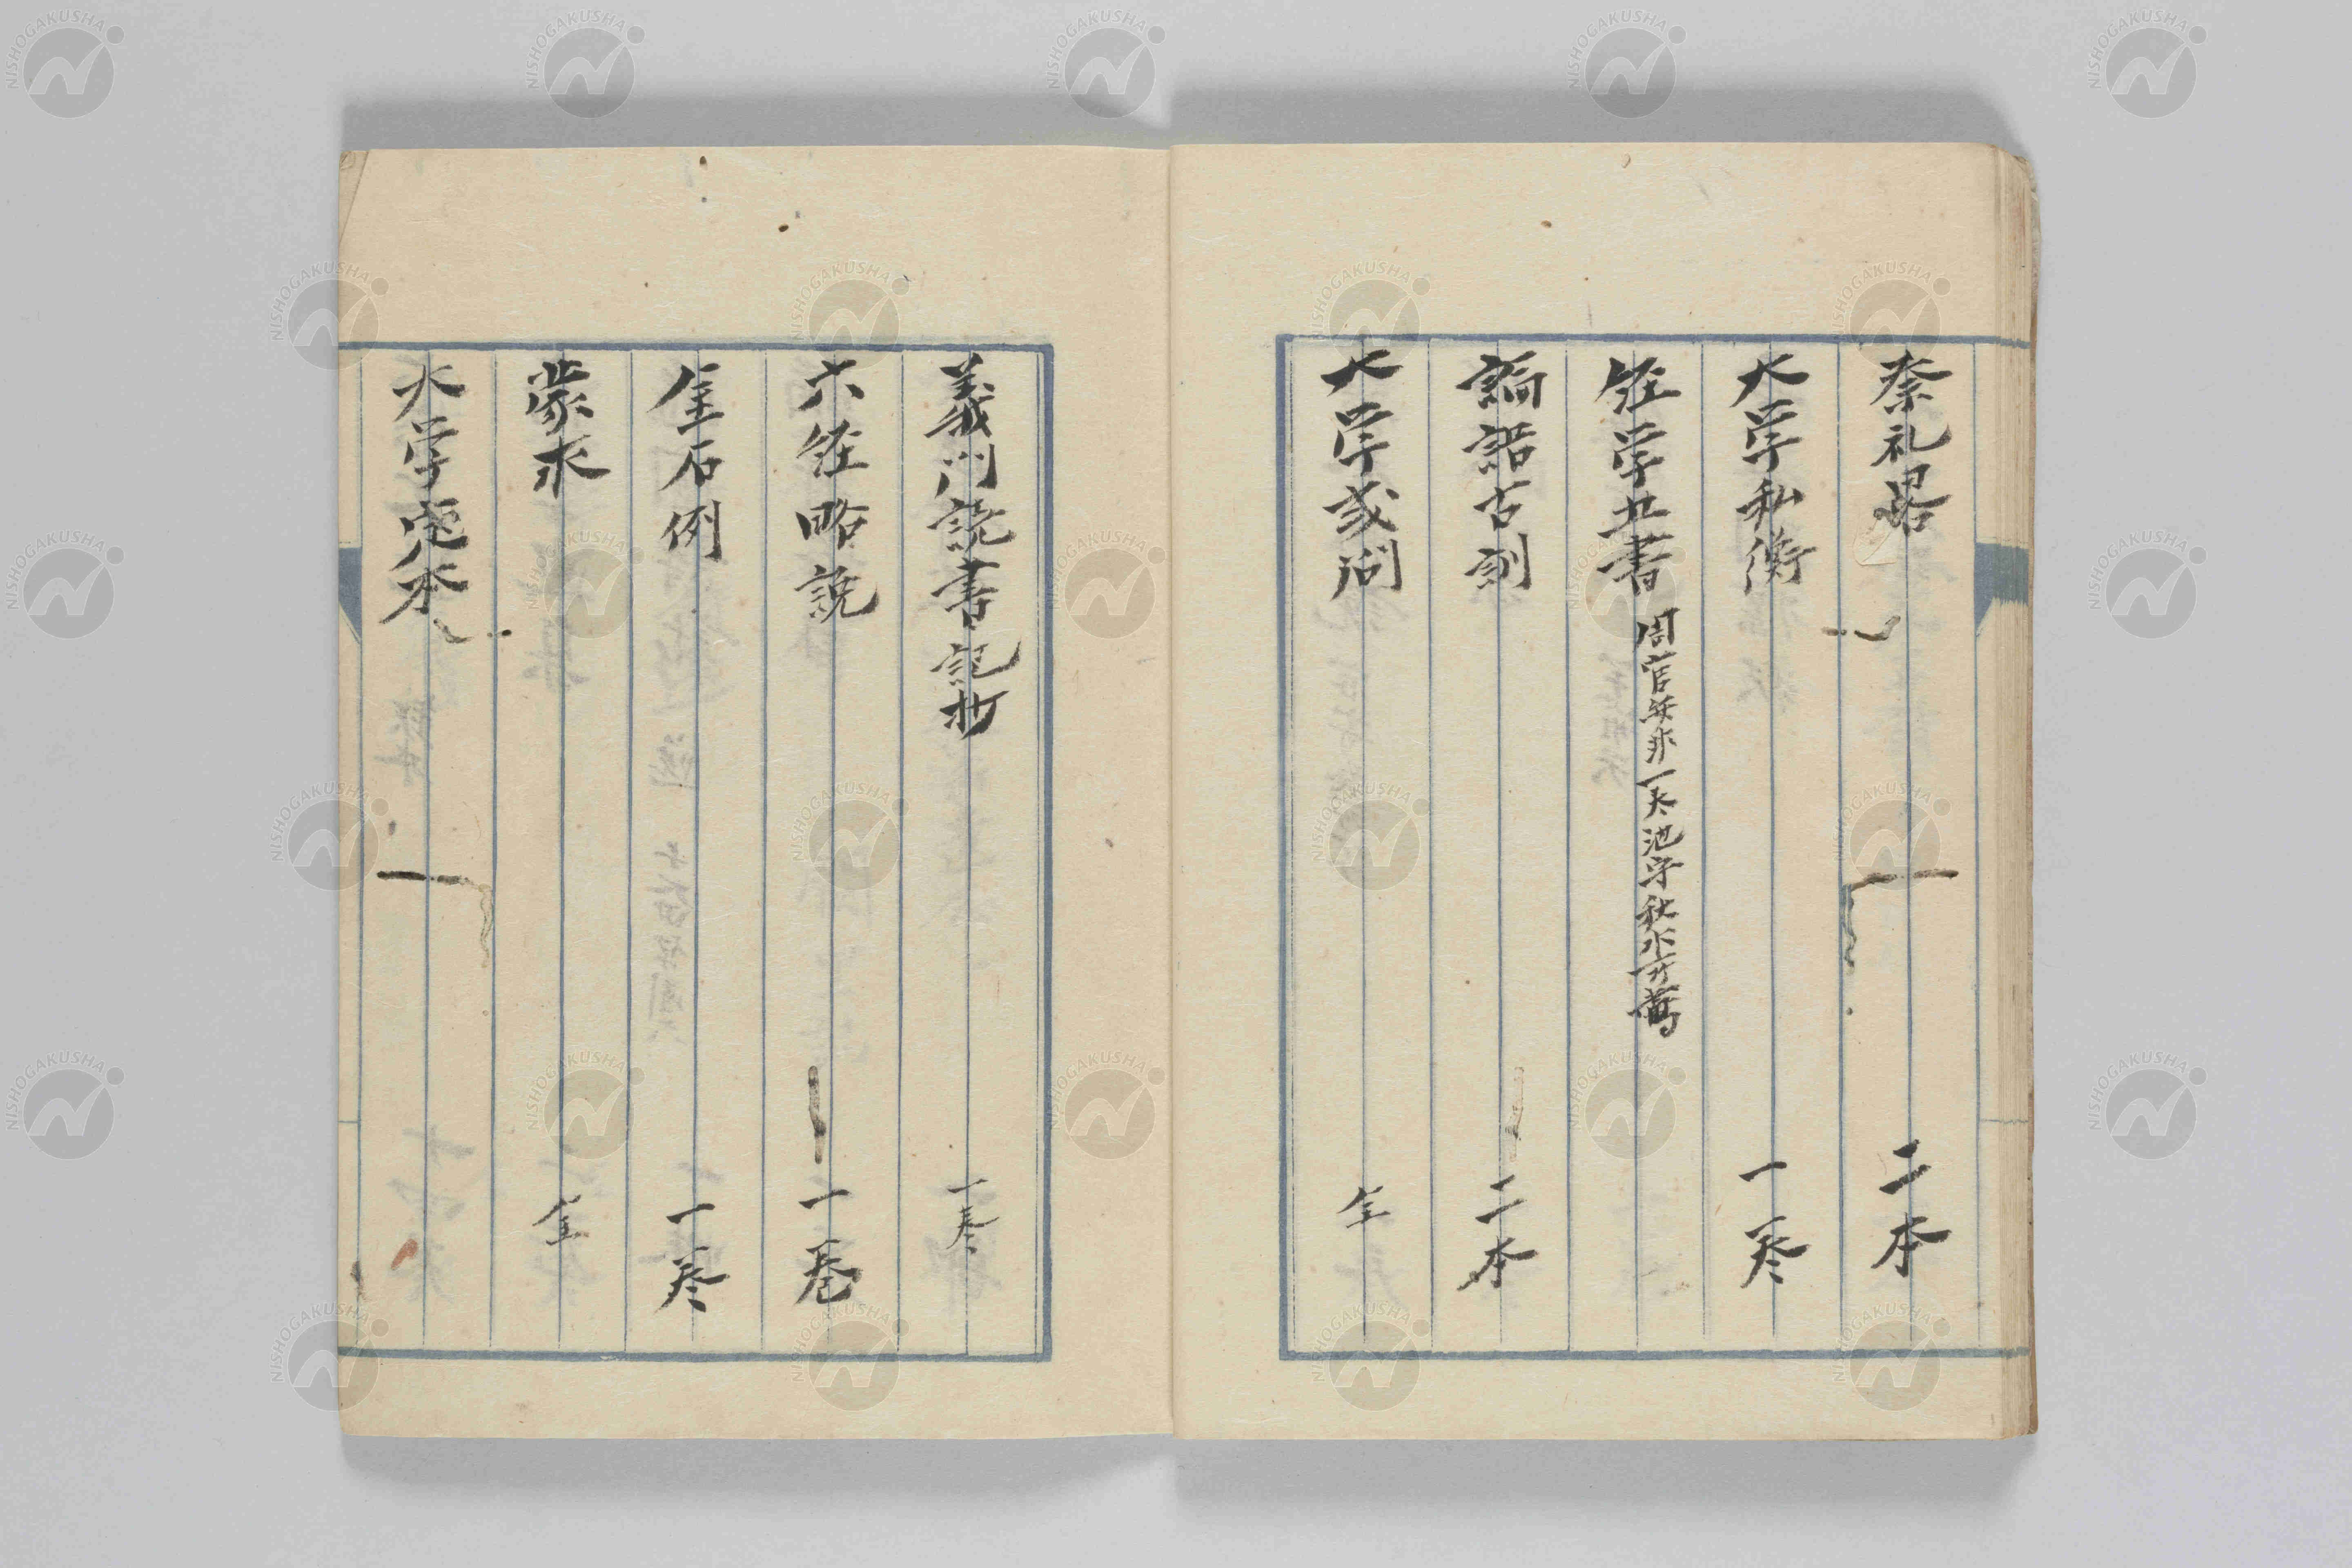 祭礼畧 二本
大学私衡 一巻
経学五書 周官 一巻
論語古訓 二本
大学或問 全
義門読書記抄 一巻
六経略説 一巻
金石例 一巻
蒙求 全
大学定本
NISHOGAKUSHA